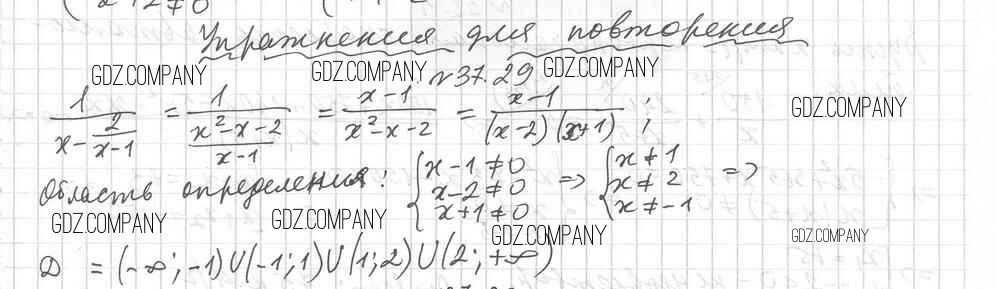 x+2≠0
Упражнения для повторения
GDZ.COMPANY GDZ.COMPANY №37.29 GDZ.COMPANY
1/(x - 2/(x-1)) = 1/((x²-x-2)/(x-1)) = (x-1)/(x²-x-2) = (x-1)/((x-2)(x+1)) ;
GDZ.COMPANY
Область определения: { x-1≠0 x-2≠0 x+1≠0 => { x≠1 x≠2 x≠-1 =>
GDZ.COMPANY GDZ.COMPANY GDZ.COMPANY GDZ.COMPANY
D = (-∞;-1)U(-1;1)U(1;2)U(2;+∞)